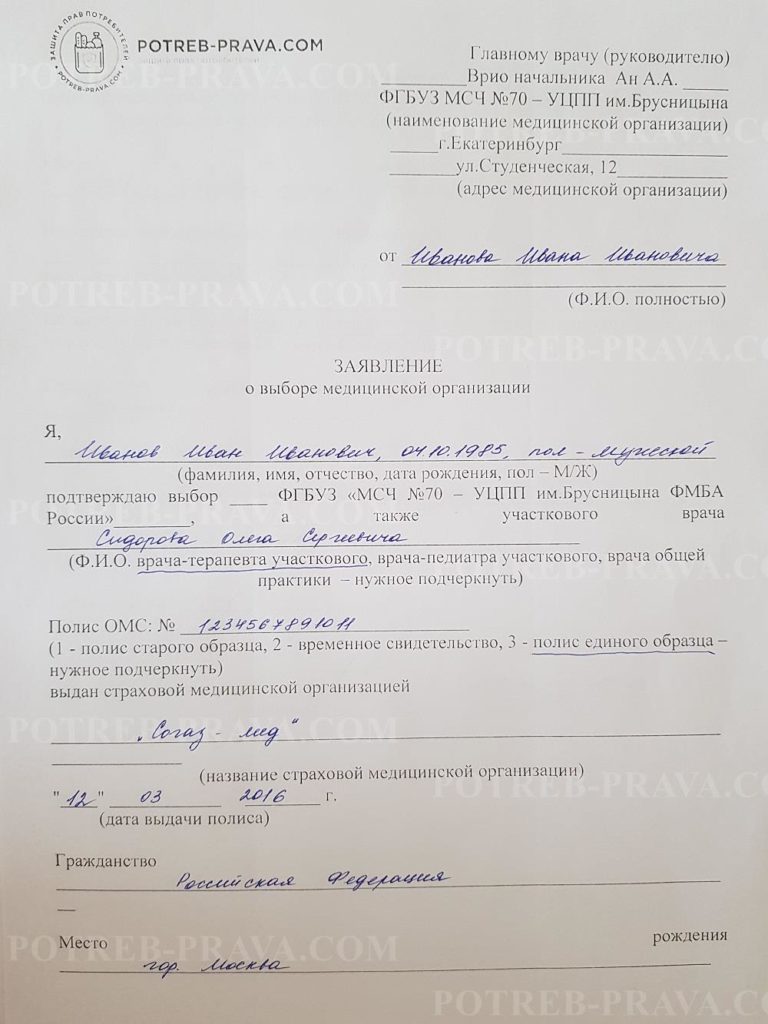 ЗАЩИТА ПРАВ ПОТРЕБИТЕЛЕЙ
POTREB-PRAVA.COM
POTREB-PRAVA.COM
защита прав потребителей
Главному врачу (руководителю)
_________Врио начальника Ан А.А. _____
ФГБУЗ МСЧ №70 – УЦПП им.Брусницына
(наименование медицинской организации)
_____г.Екатеринбург_________________
_______ул.Студенческая, 12____________
(адрес медицинской организации)
от Иванова Ивана Ивановича
(Ф.И.О. полностью)
ЗАЯВЛЕНИЕ
о выборе медицинской организации
Я,
Иванов Иван Иванович, 04.10.1985, пол – мужской
(фамилия, имя, отчество, дата рождения, пол – М/Ж)
подтверждаю выбор ____ ФГБУЗ «МСЧ №70 – УЦПП им.Брусницына ФМБА
России»________, а также участкового врача
Сидорова Олега Сергиевича
(Ф.И.О. врача-терапевта участкового, врача-педиатра участкового, врача общей
практики – нужное подчеркнуть)
Полис ОМС: № 1234567891011
(1 - полис старого образца, 2 - временное свидетельство, 3 - полис единого образца –
нужное подчеркнуть)
выдан страховой медицинской организацией
„Согаз - мед“
(название страховой медицинской организации)
"12" 03 2016 г.
(дата выдачи полиса)
Гражданство
Российская Федерация
Место рождения
гор. Москва
POTREB-PRAVA.COM
POTREB-PRAVA.COM
POTREB-PRAVA.COM
POTREB-PRAVA.COM